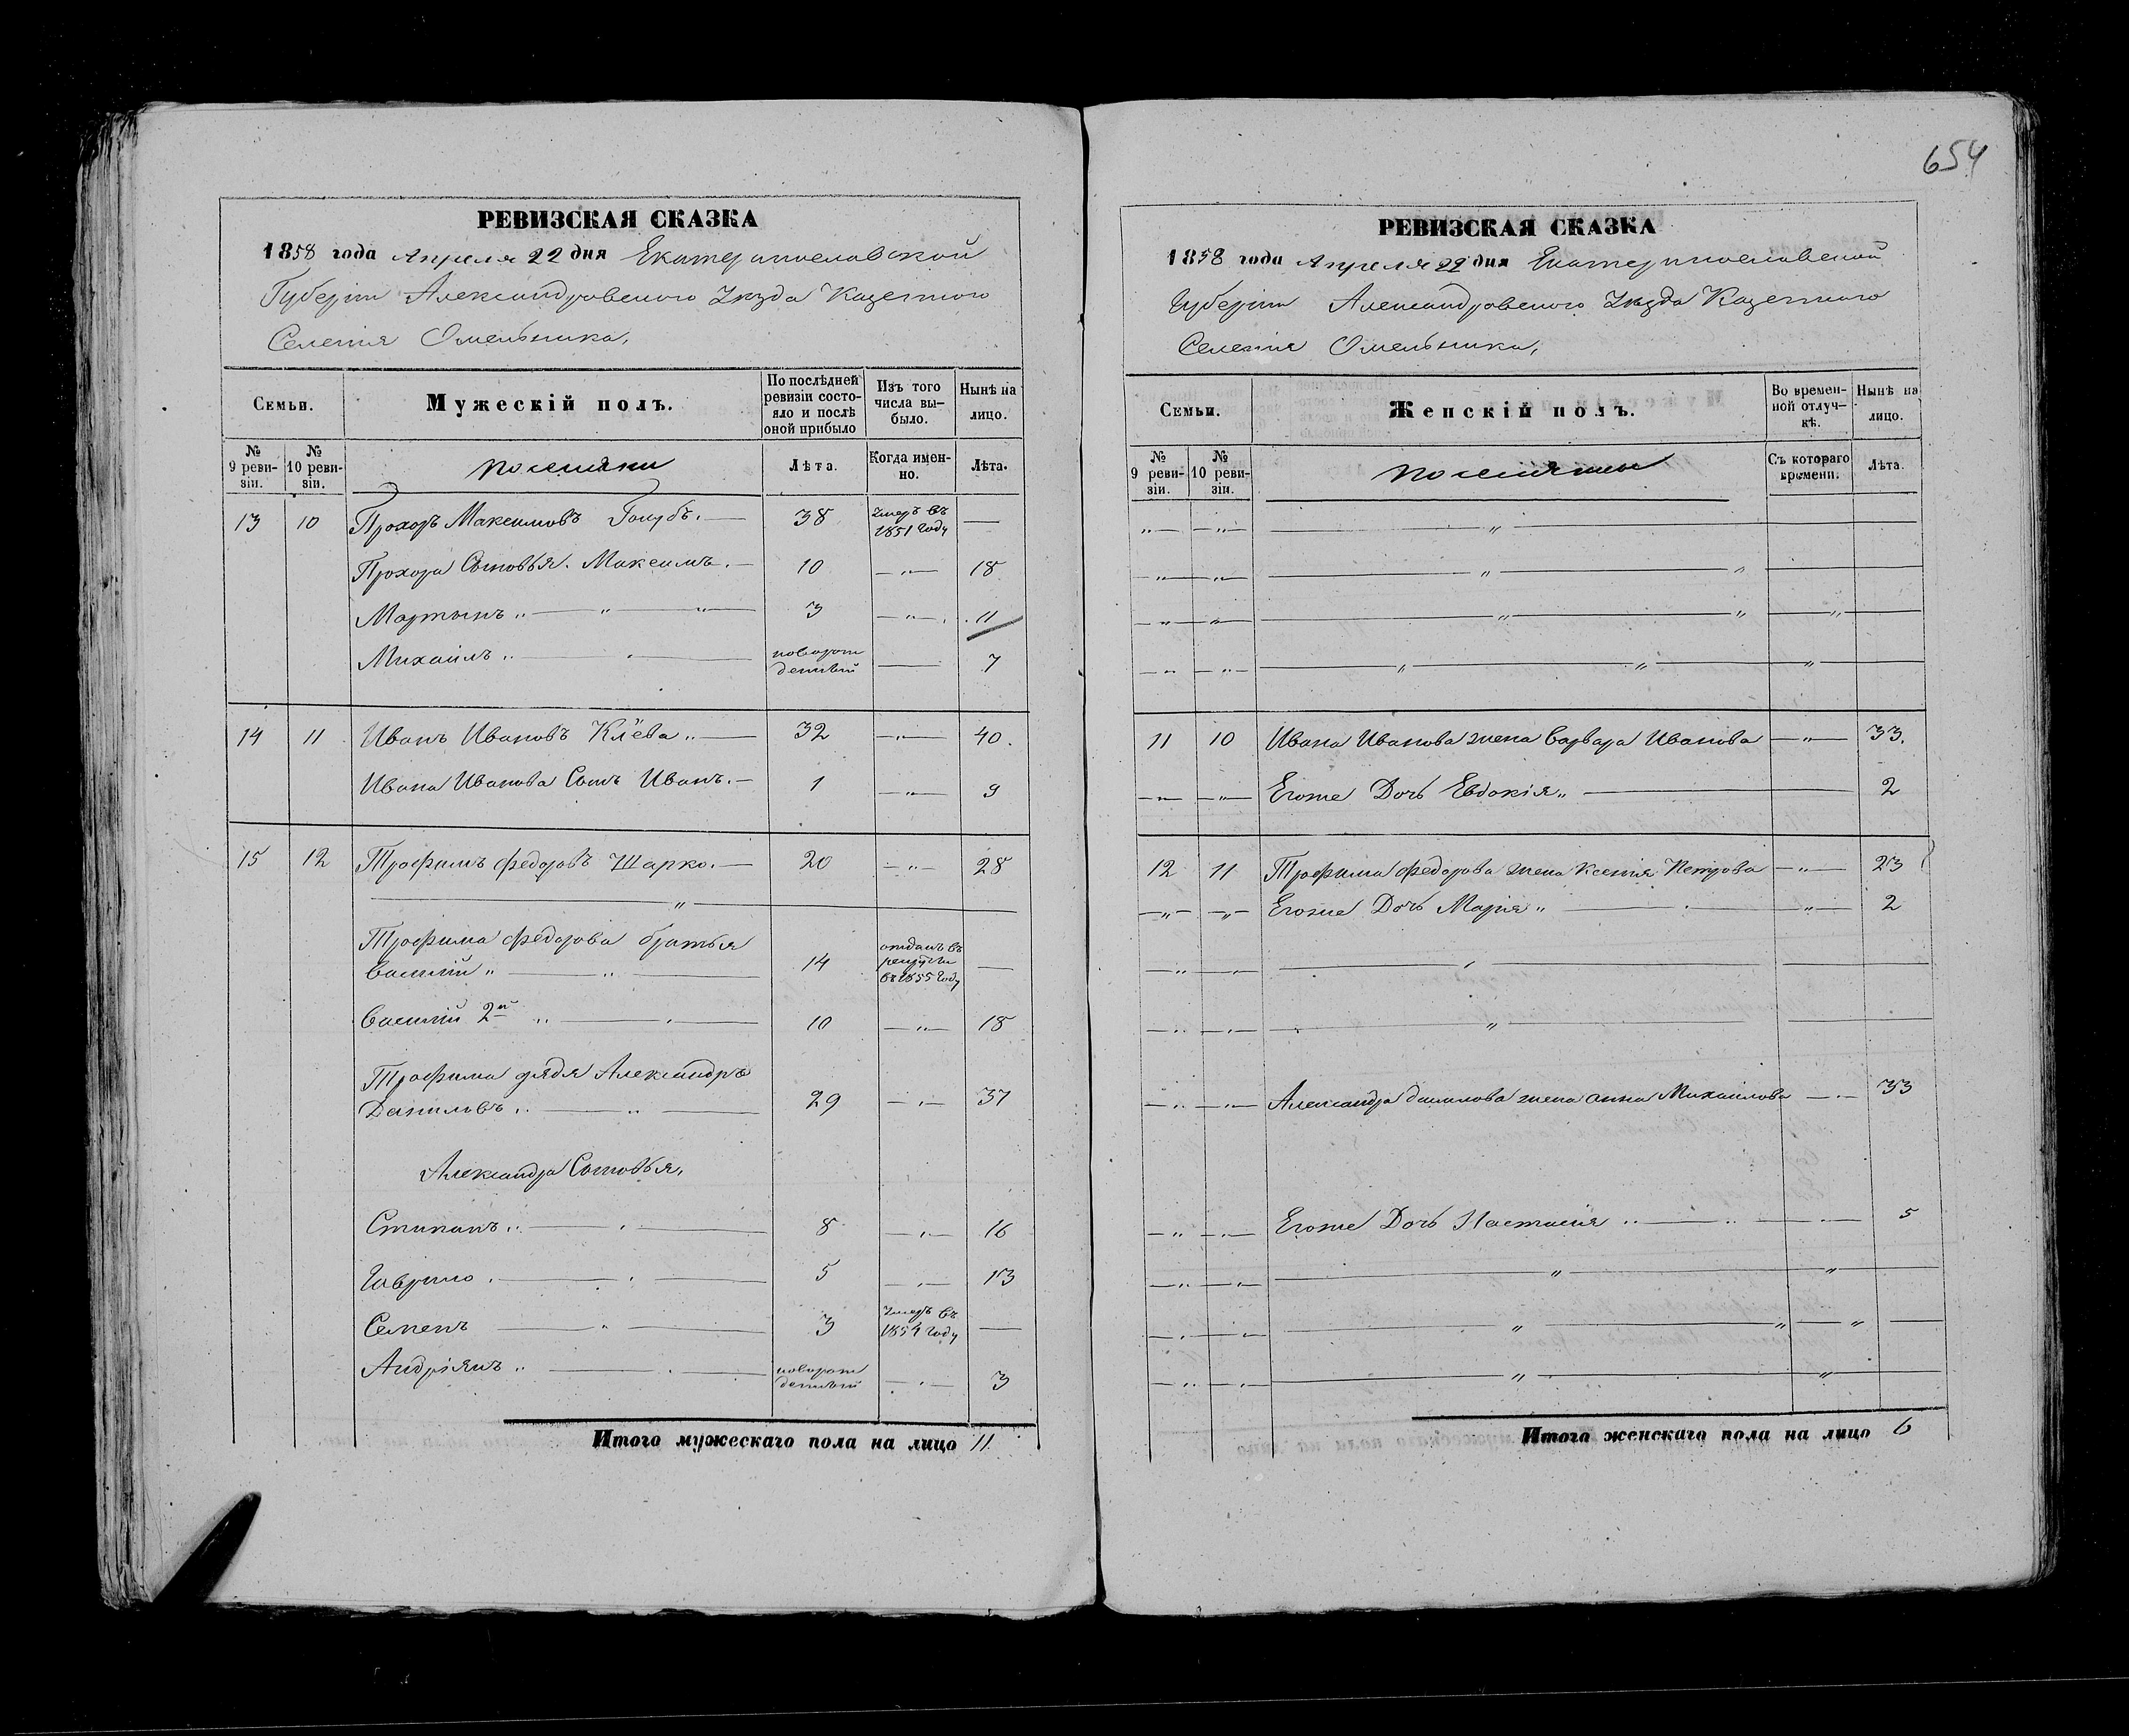 654
РЕВИЗСКАЯ СКАЗКА
1858 года Апреля 22 дня Екатеринославской
Губерніи Александровского Уѣзда Казенного
Селенія Омельника,
Семьи.
Мужескій полъ.
По послѣдней
ревизіи состо-
яло и послѣ
оной прибыло
Изъ того
числа вы-
было.
Нынѣ на
лицо.
№
9 реви-
зіи.
№
10 реви-
зіи.
Лѣта.
Когда имен-
но.
Лѣта.
13 10 Прохоръ Максимовъ Голубъ. — 38 Умеръ въ —
1851 году
Прохора Сыновья. Максимъ. — 10 — „ — 18
Мартынъ „ — „ — „ — 3 — „ — 11
Михаилъ „ — „ — новорож 7
денный
14 11 Иванъ Ивановъ Клёва „ — 32 — „ — 40.
Ивана Иванова Сынъ Иванъ. — 1 — „ — 9
15 12 Трофимъ Федоровъ Шарко. — 20 — „ — 28
— „ —
Трофима Федорова братья
Василий „ — „ — 14 отданъ въ —
рекруты
въ 1855 году
Василий 2й „ — „ — 10 — „ — 18
Трофима дядя Александръ
Даниловъ „ — „ — 29 — „ — 37
Александра Сыновья,
Стипанъ „ — „ — 8 — „ — 16
Гаврило „ — „ — 5 — „ — 13
Семенъ — „ — 3 Умеръ въ —
1854 году
Андріянъ „ — „ — новорож — „ — 3
денный
Итого мужескаго пола на лицо 11.
РЕВИЗСКАЯ СКАЗКА
1858 года Апреля 22 дня Екатеринославской
Губерніи Александровского Уѣзда Казенного
Селенія Омельника,
Семьи.
Женскій полъ.
Во времен-
ной отлуч-
кѣ.
Нынѣ на
лицо.
№
9 реви-
зіи.
№
10 реви-
зіи.
Съ котораго
времени.
Лѣта.
11 10 Ивана Иванова жена Варвара Иванова — „ — 33.
— „ — „ — Егоже Дочь Евдокія „ — 2
12 11 Трофима Федорова жена Ксенія Петрова — „ — 23
— „ — „ — Егоже Дочь Марія „ — „ — 2
— „ — „ — Александра Данилова жена Анна Михайлова — „ — 33
— „ — „ — Егоже Дочь Настасия „ — „ — 5
Итого женскаго пола на лицо 6